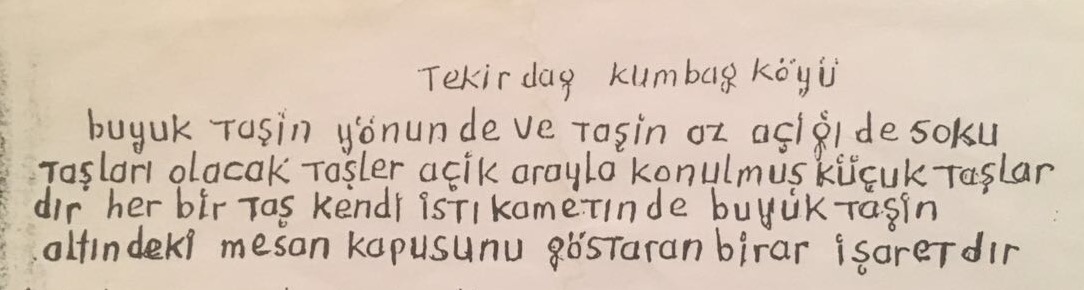 Tekir dag kumbag köyü
buyuk Taşin yönün de ve Taşin az açiği de soku
Taşları olacak Taşler açik arayla konulmuş küçuk Taşlar
dır her bir Taş kendi istikametinde buyük Taşin
altindeki mesan kapusunu göstaran birar işaretdir